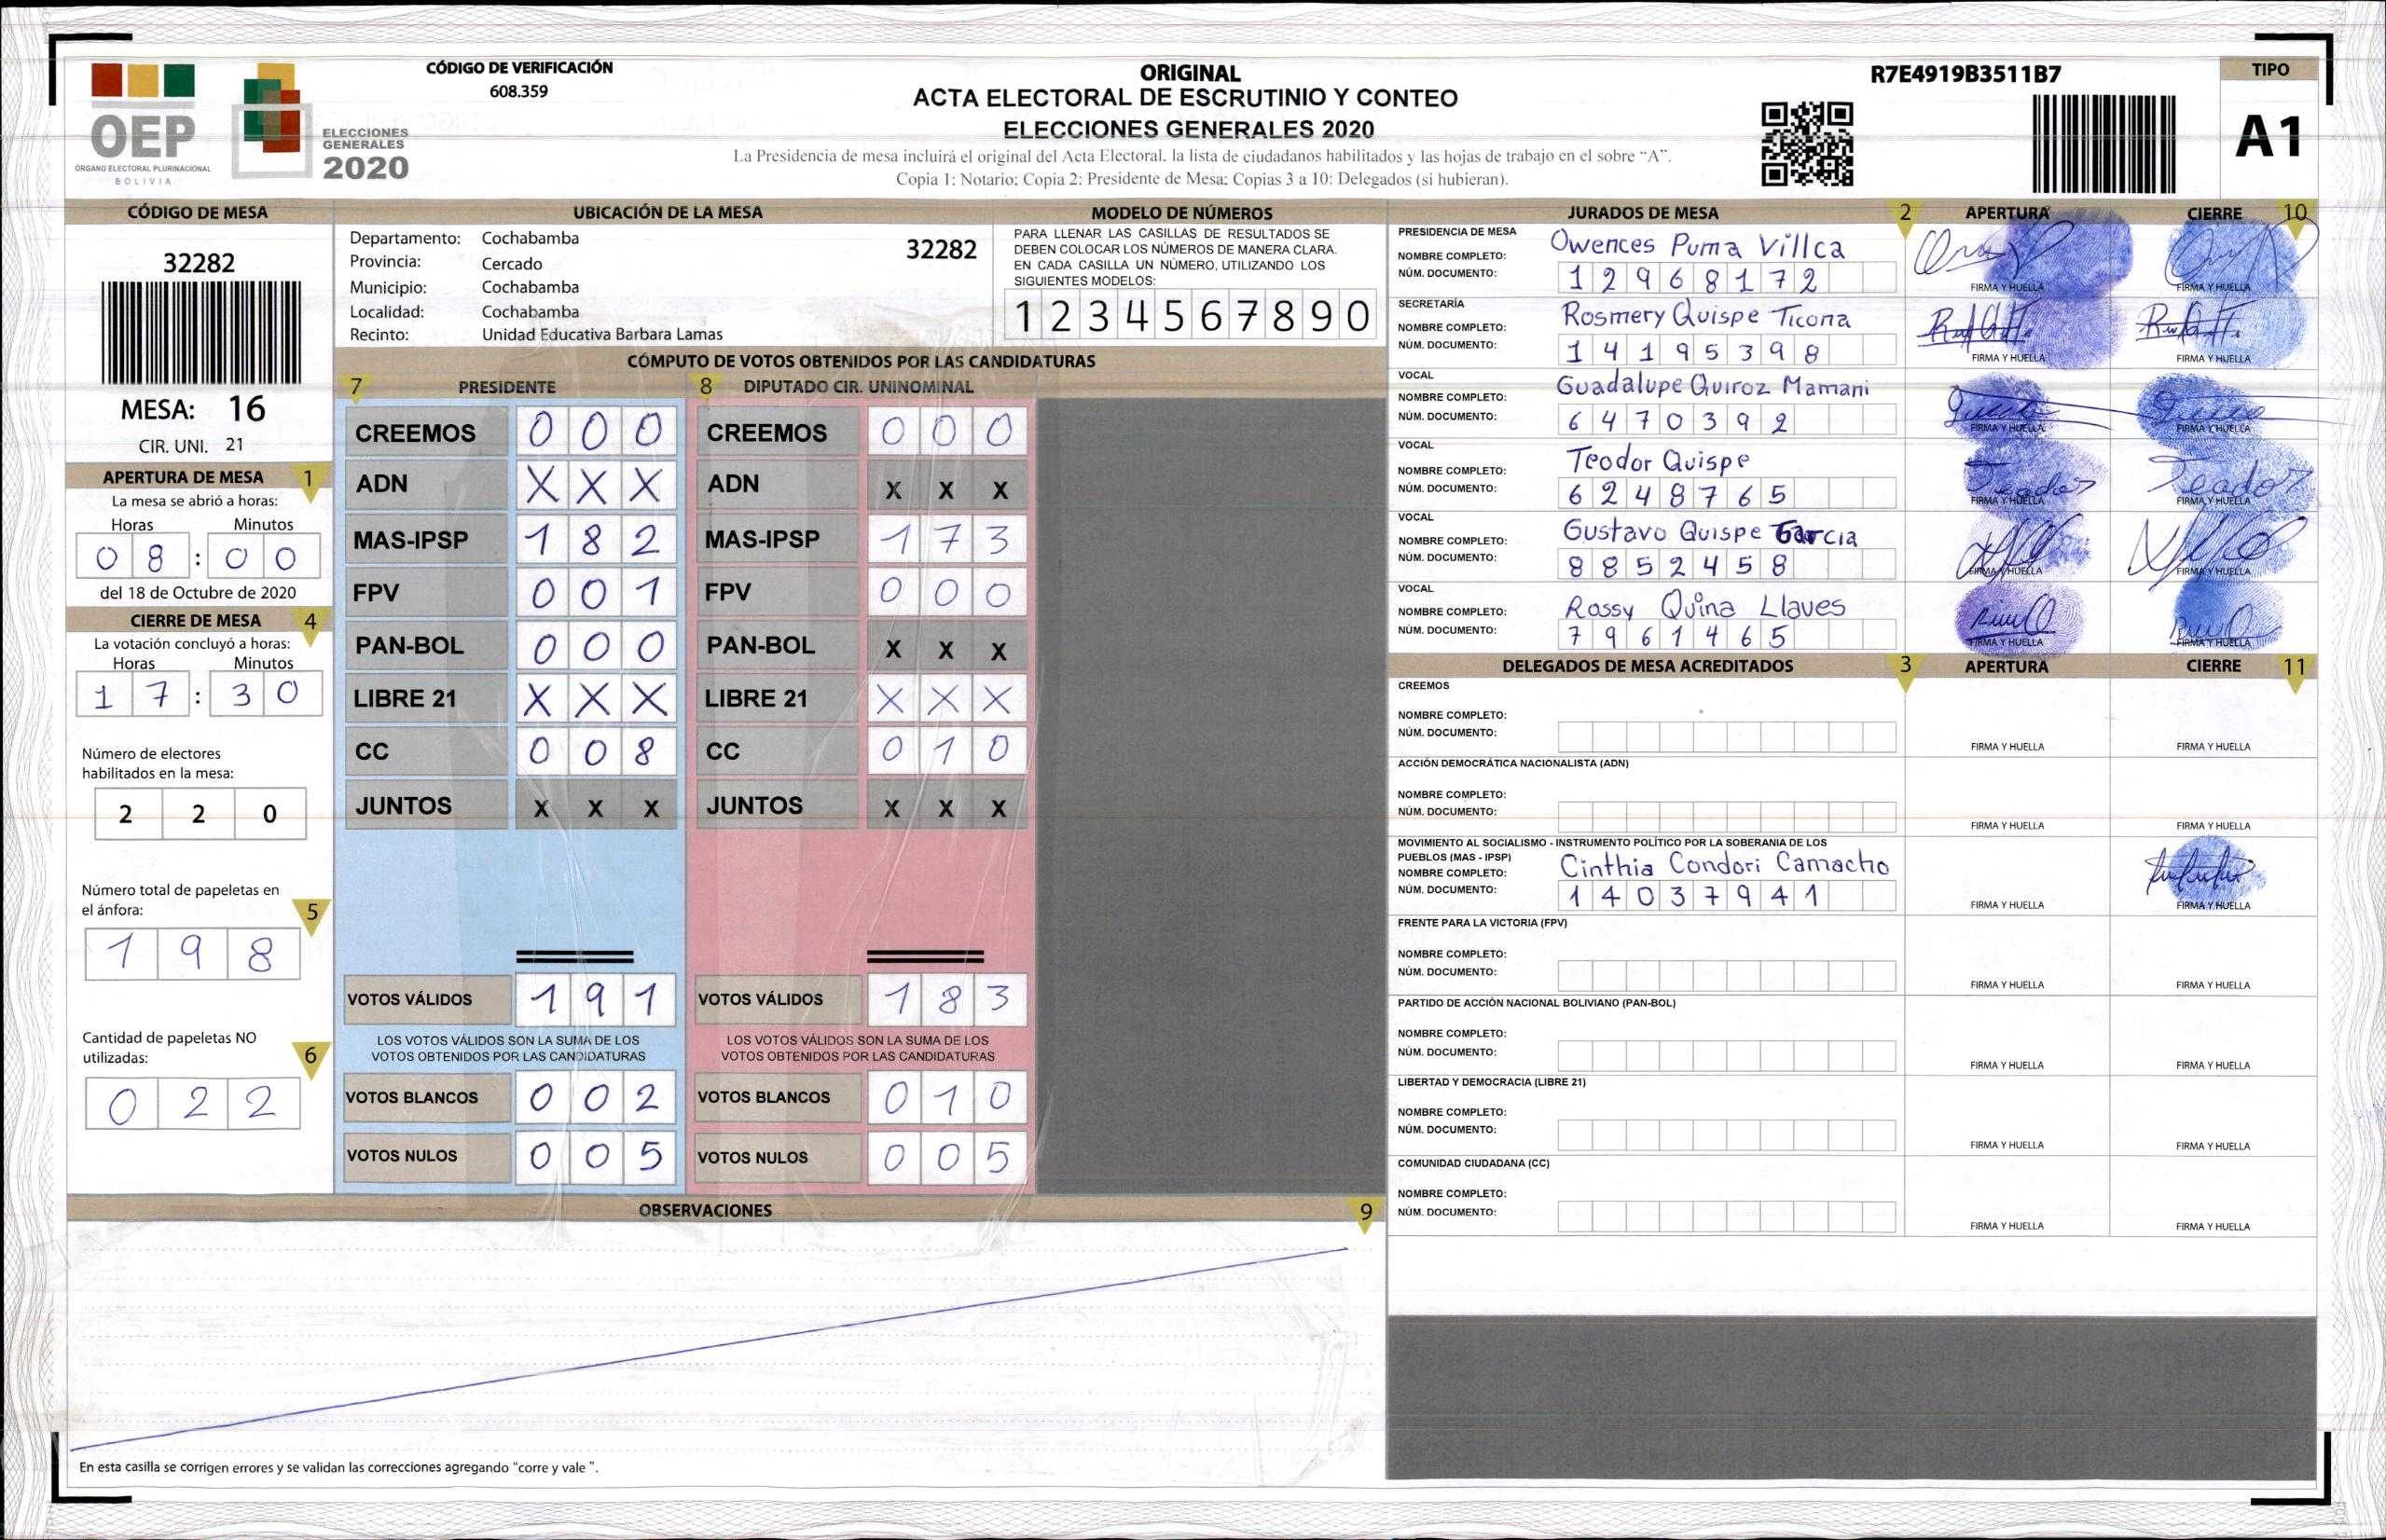 OEP
ÓRGANO ELECTORAL PLURINACIONAL
BOLIVIA
ELECCIONES
GENERALES
2020
CÓDIGO DE VERIFICACIÓN
608.359
ORIGINAL
ACTA ELECTORAL DE ESCRUTINIO Y CONTEO
ELECCIONES GENERALES 2020
La Presidencia de mesa incluirá el original del Acta Electoral, la lista de ciudadanos habilitados y las hojas de trabajo en el sobre "A".
Copia 1: Notario; Copia 2: Presidente de Mesa; Copias 3 a 10: Delegados (si hubieran).
R7E4919B3511B7
TIPO
A1
CÓDIGO DE MESA
32282
MESA: 16
CIR. UNI. 21
APERTURA DE MESA 1
La mesa se abrió a horas:
Horas Minutos
0 8 : 0 0
del 18 de Octubre de 2020
CIERRE DE MESA 4
La votación concluyó a horas:
Horas Minutos
1 7 : 3 0
Número de electores
habilitados en la mesa:
2 2 0
Número total de papeletas en
el ánfora: 5
1 9 8
Cantidad de papeletas NO
utilizadas: 6
0 2 2
UBICACIÓN DE LA MESA
Departamento: Cochabamba
32282
Provincia: Cercado
Municipio: Cochabamba
Localidad: Cochabamba
Recinto: Unidad Educativa Barbara Lamas
MODELO DE NÚMEROS
PARA LLENAR LAS CASILLAS DE RESULTADOS SE
DEBEN COLOCAR LOS NÚMEROS DE MANERA CLARA.
EN CADA CASILLA UN NÚMERO, UTILIZANDO LOS
SIGUIENTES MODELOS:
1 2 3 4 5 6 7 8 9 0
CÓMPUTO DE VOTOS OBTENIDOS POR LAS CANDIDATURAS
7 PRESIDENTE 8 DIPUTADO CIR. UNINOMINAL
CREEMOS 0 0 0 CREEMOS 0 0 0
ADN X X X ADN X X X
MAS-IPSP 1 8 2 MAS-IPSP 1 7 3
FPV 0 0 1 FPV 0 0 0
PAN-BOL 0 0 0 PAN-BOL X X X
LIBRE 21 X X X LIBRE 21 X X X
CC 0 0 8 CC 0 1 0
JUNTOS X X X JUNTOS X X X
VOTOS VÁLIDOS 1 9 1 VOTOS VÁLIDOS 1 8 3
LOS VOTOS VÁLIDOS SON LA SUMA DE LOS LOS VOTOS VÁLIDOS SON LA SUMA DE LOS
VOTOS OBTENIDOS POR LAS CANDIDATURAS VOTOS OBTENIDOS POR LAS CANDIDATURAS
VOTOS BLANCOS 0 0 2 VOTOS BLANCOS 0 1 0
VOTOS NULOS 0 0 5 VOTOS NULOS 0 0 5
OBSERVACIONES 9
En esta casilla se corrigen errores y se validan las correcciones agregando "corre y vale ".
JURADOS DE MESA 2 APERTURA CIERRE 10
PRESIDENCIA DE MESA
NOMBRE COMPLETO: Owences Puma Villca
NÚM. DOCUMENTO: 1 2 9 6 8 1 7 2
FIRMA Y HUELLA FIRMA Y HUELLA
SECRETARÍA
NOMBRE COMPLETO: Rosmery Quispe Ticona
NÚM. DOCUMENTO: 1 4 1 9 5 3 9 8
FIRMA Y HUELLA FIRMA Y HUELLA
VOCAL
NOMBRE COMPLETO: Guadalupe Quiroz Mamani
NÚM. DOCUMENTO: 6 4 7 0 3 9 2
FIRMA Y HUELLA FIRMA Y HUELLA
VOCAL
NOMBRE COMPLETO: Teodor Quispe
NÚM. DOCUMENTO: 6 2 4 8 7 6 5
FIRMA Y HUELLA FIRMA Y HUELLA
VOCAL
NOMBRE COMPLETO: Gustavo Quispe Garcia
NÚM. DOCUMENTO: 8 8 5 2 4 5 8
FIRMA Y HUELLA FIRMA Y HUELLA
VOCAL
NOMBRE COMPLETO: Rossy Quina Llaves
NÚM. DOCUMENTO: 7 9 6 1 4 6 5
FIRMA Y HUELLA FIRMA Y HUELLA
DELEGADOS DE MESA ACREDITADOS 3 APERTURA CIERRE 11
CREEMOS
NOMBRE COMPLETO:
NÚM. DOCUMENTO:
FIRMA Y HUELLA FIRMA Y HUELLA
ACCIÓN DEMOCRÁTICA NACIONALISTA (ADN)
NOMBRE COMPLETO:
NÚM. DOCUMENTO:
FIRMA Y HUELLA FIRMA Y HUELLA
MOVIMIENTO AL SOCIALISMO - INSTRUMENTO POLÍTICO POR LA SOBERANIA DE LOS
PUEBLOS (MAS - IPSP)
NOMBRE COMPLETO: Cinthia Condori Camacho
NÚM. DOCUMENTO: 1 4 0 3 7 9 4 1
FIRMA Y HUELLA FIRMA Y HUELLA
FRENTE PARA LA VICTORIA (FPV)
NOMBRE COMPLETO:
NÚM. DOCUMENTO:
FIRMA Y HUELLA FIRMA Y HUELLA
PARTIDO DE ACCIÓN NACIONAL BOLIVIANO (PAN-BOL)
NOMBRE COMPLETO:
NÚM. DOCUMENTO:
FIRMA Y HUELLA FIRMA Y HUELLA
LIBERTAD Y DEMOCRACIA (LIBRE 21)
NOMBRE COMPLETO:
NÚM. DOCUMENTO:
FIRMA Y HUELLA FIRMA Y HUELLA
COMUNIDAD CIUDADANA (CC)
NOMBRE COMPLETO:
NÚM. DOCUMENTO:
FIRMA Y HUELLA FIRMA Y HUELLA